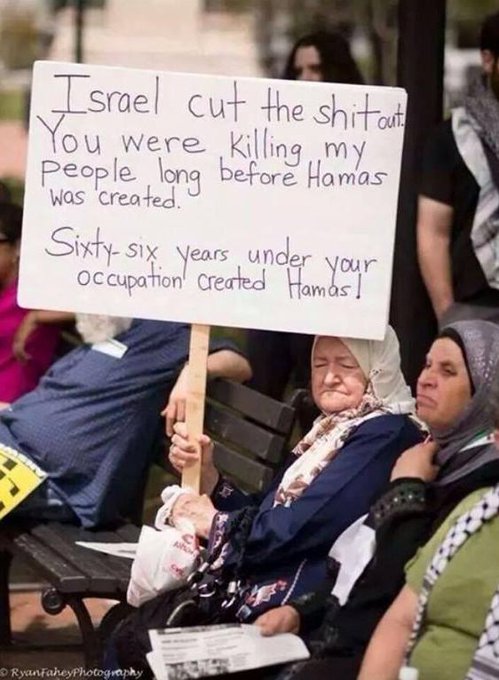 Israel cut the shit out.
You were killing my
people long before Hamas
was created.
Sixty-six years under your
occupation created Hamas!
© RyanFaheyPhotography